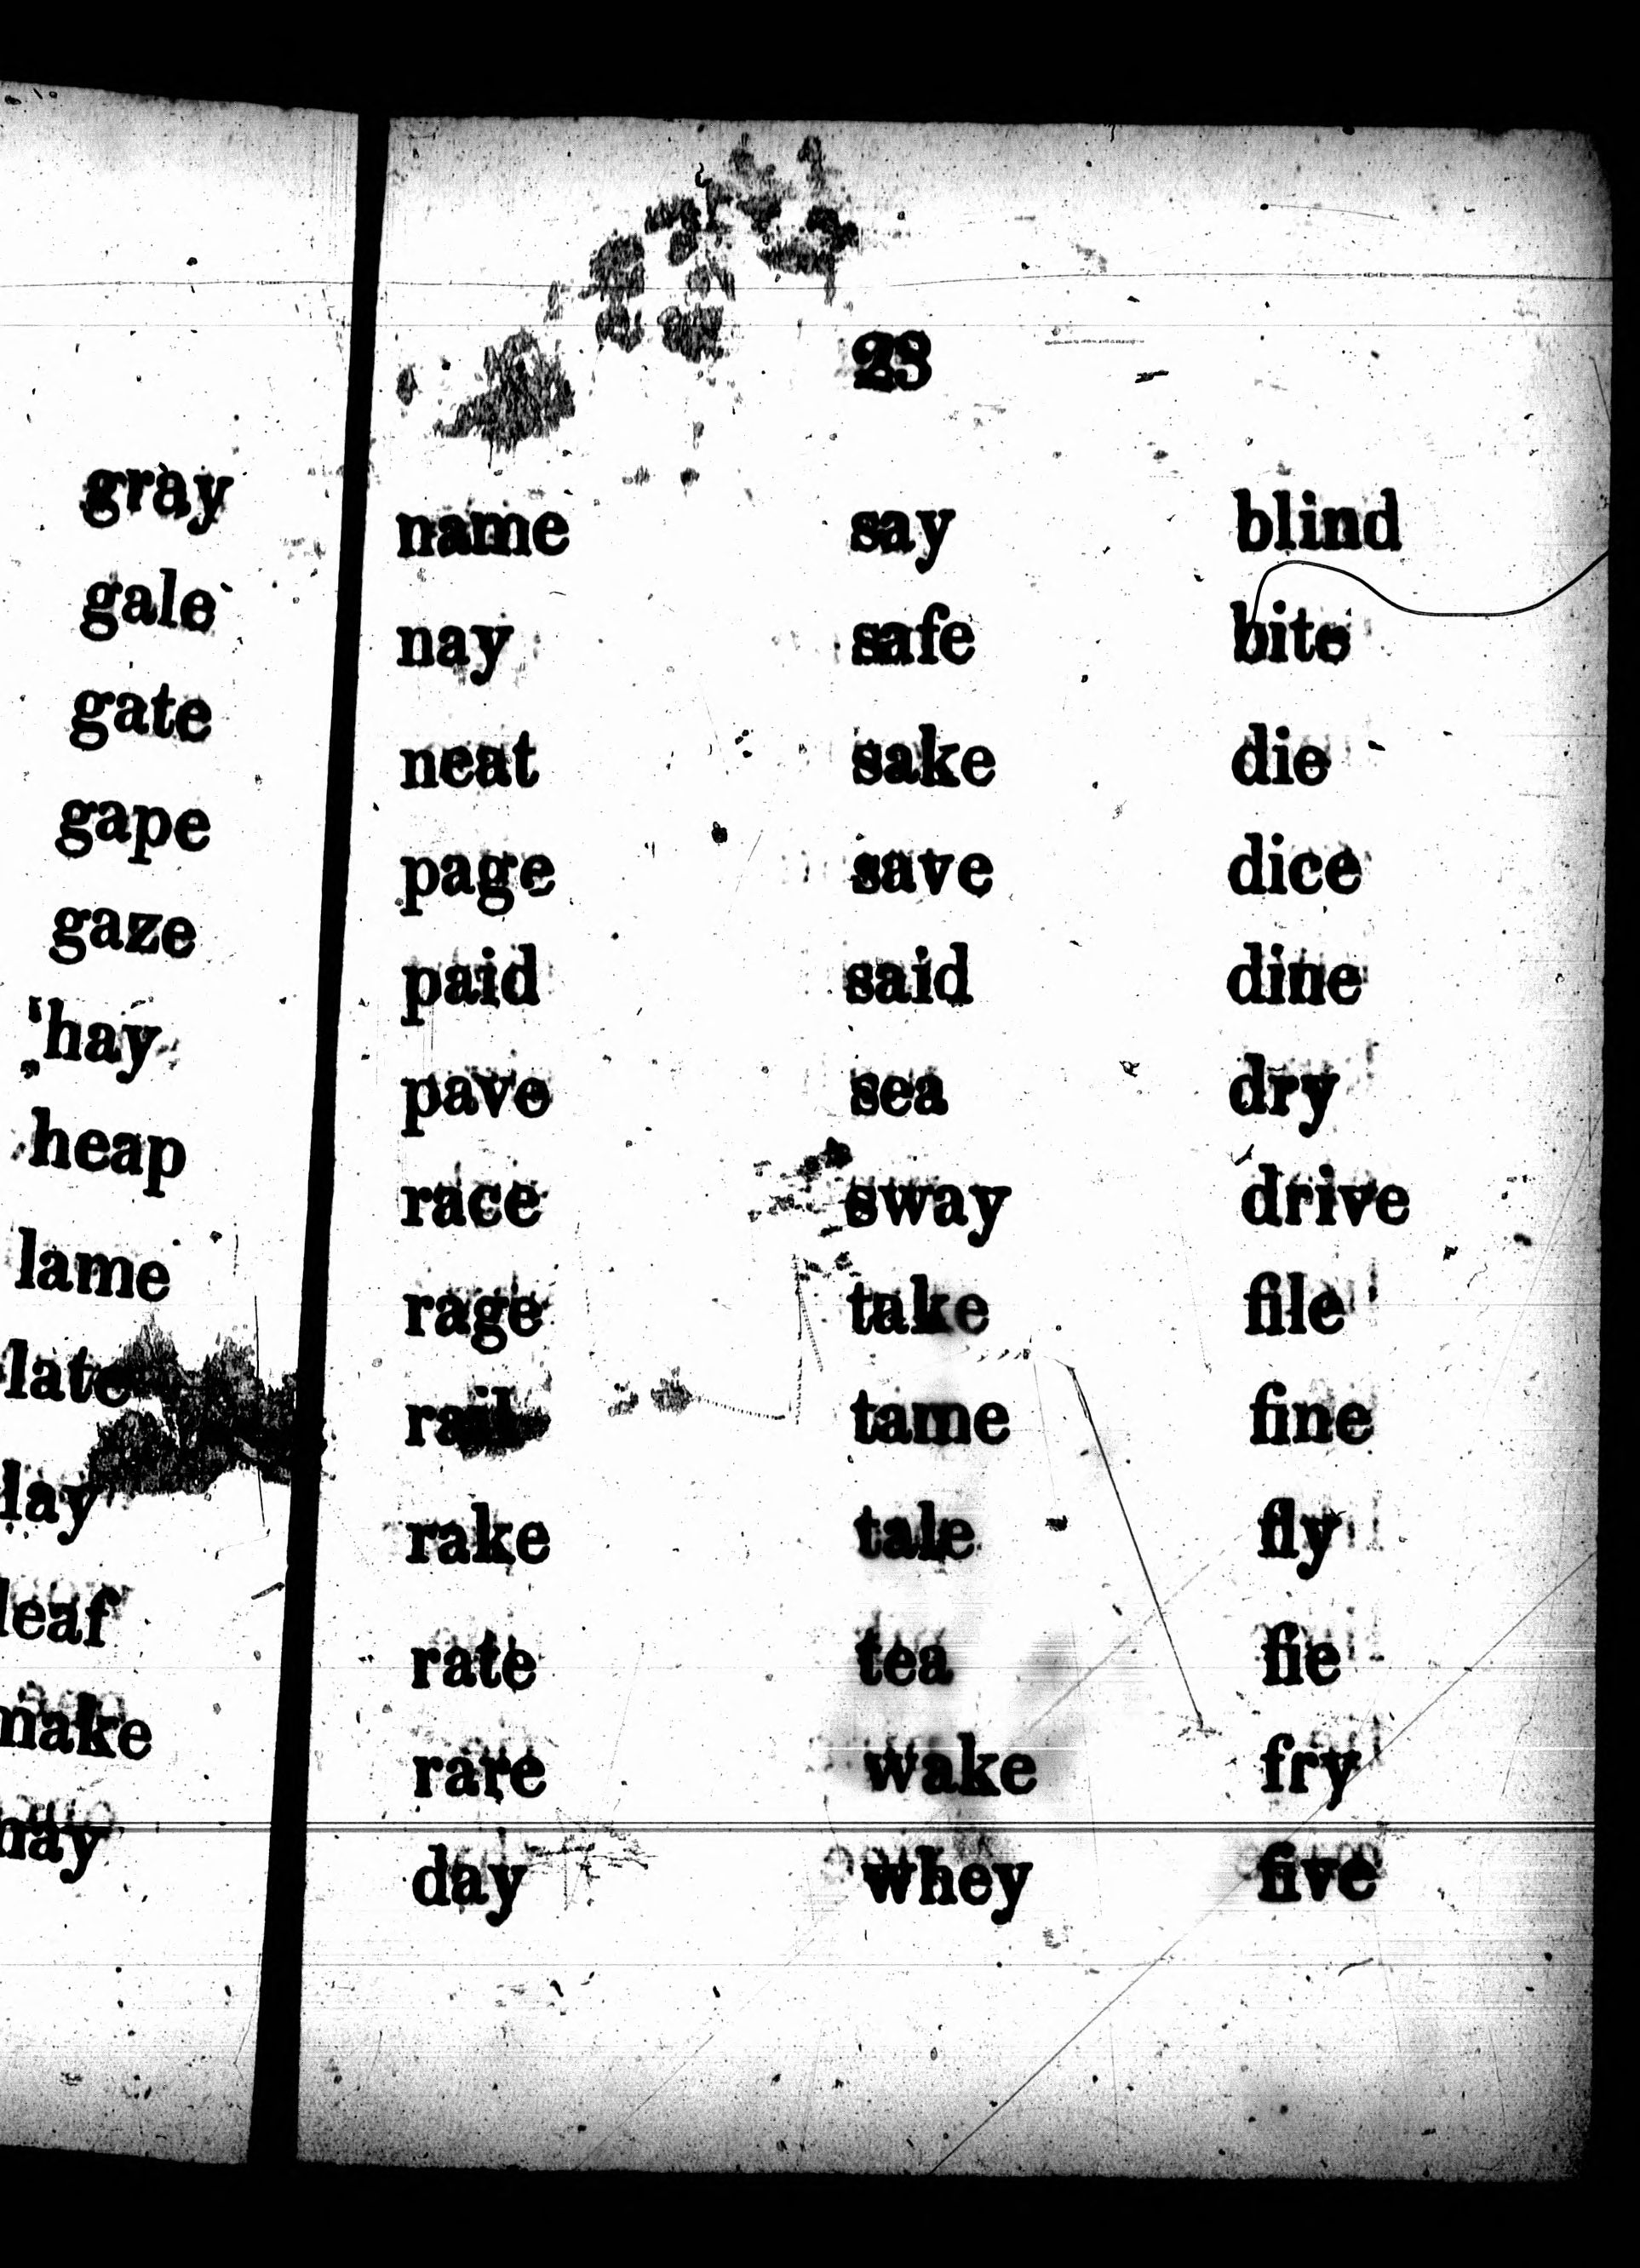 gray
gale
gate
gape
gaze
hay
heap
lame
late
lay
leaf
make
23
name say blind
nay safe bite
neat sake die
page save dice
paid said dine
pave sea dry
race sway drive
rage take file
rail tame fine
rake tale fly
rate tea fie
rare wake fry
day whey five